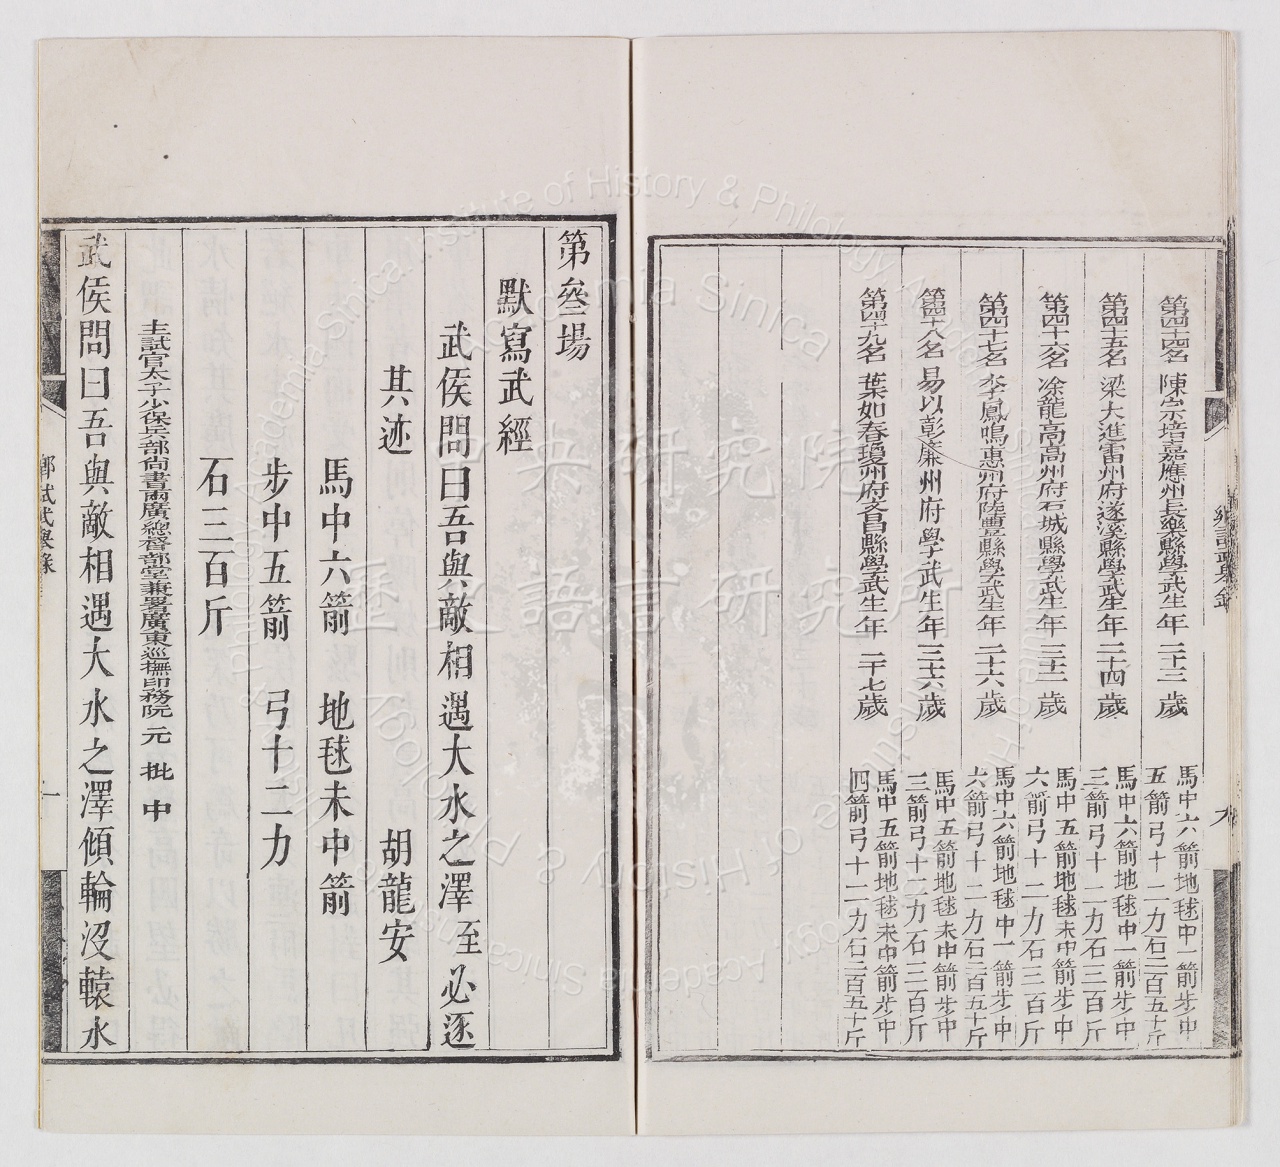 第四十四名 陳宗培嘉應州長樂縣學武生年二十三歲 馬中六箭地毬中一箭步中五箭弓十二力石二百五十斤
第四十五名 梁大進雷州府遂溪縣學武生年二十四歲 馬中六箭地毬中一箭步中三箭弓十二力石三百斤
第四十六名 凃龍高高州府石城縣學武生年三十二歲 馬中五箭地毬未中箭步中六箭弓十二力石三百斤
第四十七名 李鳳鳴惠州府陸豐縣學武生年二十六歲 馬中六箭地毬中一箭步中六箭弓十二力石二百五十斤
第四十八名 易以彭廉州府學武生年三十六歲 馬中五箭地毬未中箭步中三箭弓十二力石三百斤
第四十九名 葉如春瓊州府文昌縣學武生年二十七歲 馬中五箭地毬未中箭步中四箭弓十二力石二百五十斤
第叄場
默寫武經
武侯問曰吾與敵相遇大水之澤至必逐
其迹 胡龍安
馬中六箭 地毬未中箭
步中五箭 弓十二力
石三百斤
主試官太子少保兵部尚書兩廣總督部堂兼署廣東巡撫印務阮 元 批 中
武侯問曰吾與敵相遇大水之澤傾輪沒轅水
鄉試武舉錄 一